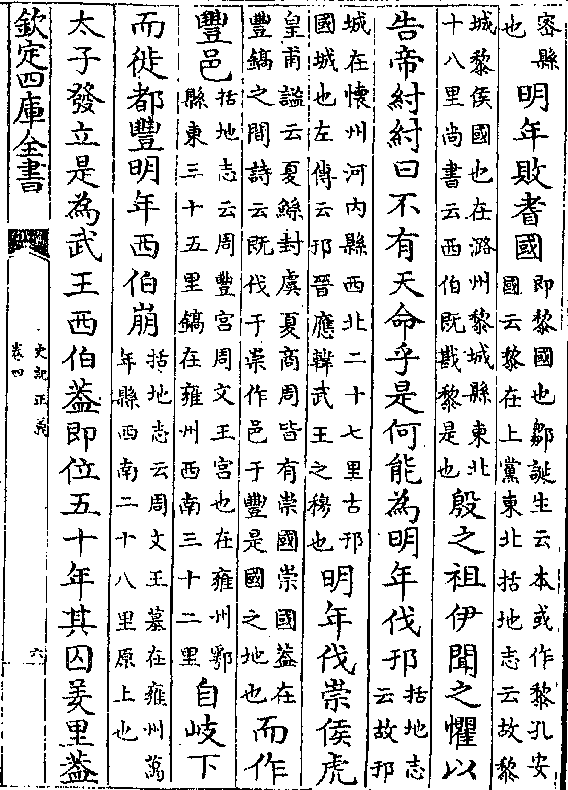 容縣也明年敗耆國即黎國也鄒誕生云本或作黎孔安國云黎在上黨東北括地志云故黎
城黎侯國也在潞州黎城縣東北十八里尚書云西伯既戡黎是也殷之祖伊聞之懼以
告帝紂紂曰不有天命乎是何能為明年伐邘括地志云故邘
城在懷州河內縣西北二十七里古邘國城也左傳云邘晉應韓武王之穆也明年伐崇侯虎
皇甫謐云夏鯀封虞夏商周皆有崇國崇國葢在豐鎬之間詩云既伐于崇作邑于豐是國之地也而作
豐邑括地志云周豐宮周文王宮也在雍州鄠縣東三十五里鎬在雍州西南三十二里自岐下
而徙都豐明年西伯崩括地志云周文王墓在雍州萬年縣西南二十八里原上也
太子發立是為武王西伯葢即位五十年其囚羑里葢
欽定四庫全書
史記正義
卷四
六